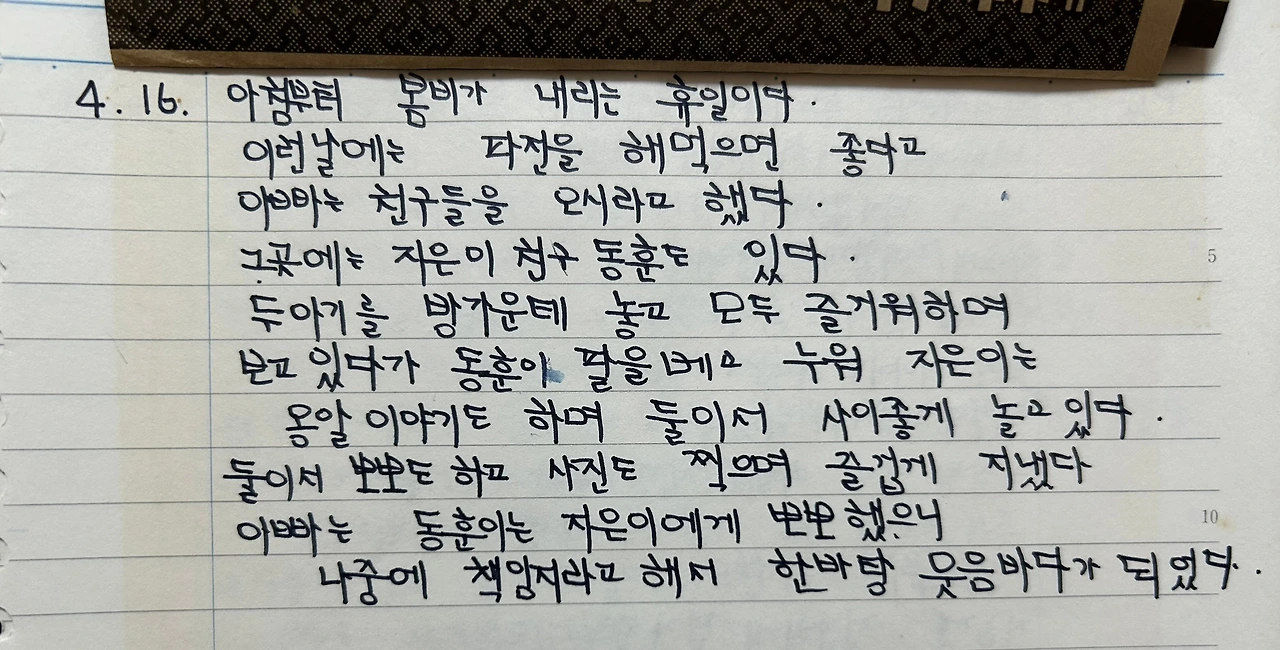 4. 16. 아침부터 봄비가 내리는 휴일이다.
이런날에는 파전을 해먹으면 좋다고
아빠는 친구들을 오시라고 했다.
그곳에는 지은이 친구 동훈도 있다.
두아기를 방가운테 놓고 모두 즐거워하며
보고있다가 동훈이 팔을베고 누워 지은이는
옹알이야기도 하며 둘이서 사이좋게 놀고있다.
둘이서 뽀뽀도 하고 사진도 찍으며 즐겁게 지냈다
아빠는 동훈이는 지은이에게 뽀뽀했으니
나중에 책임지라고 해서 한바탕 웃음바다가 되었다.
5
10